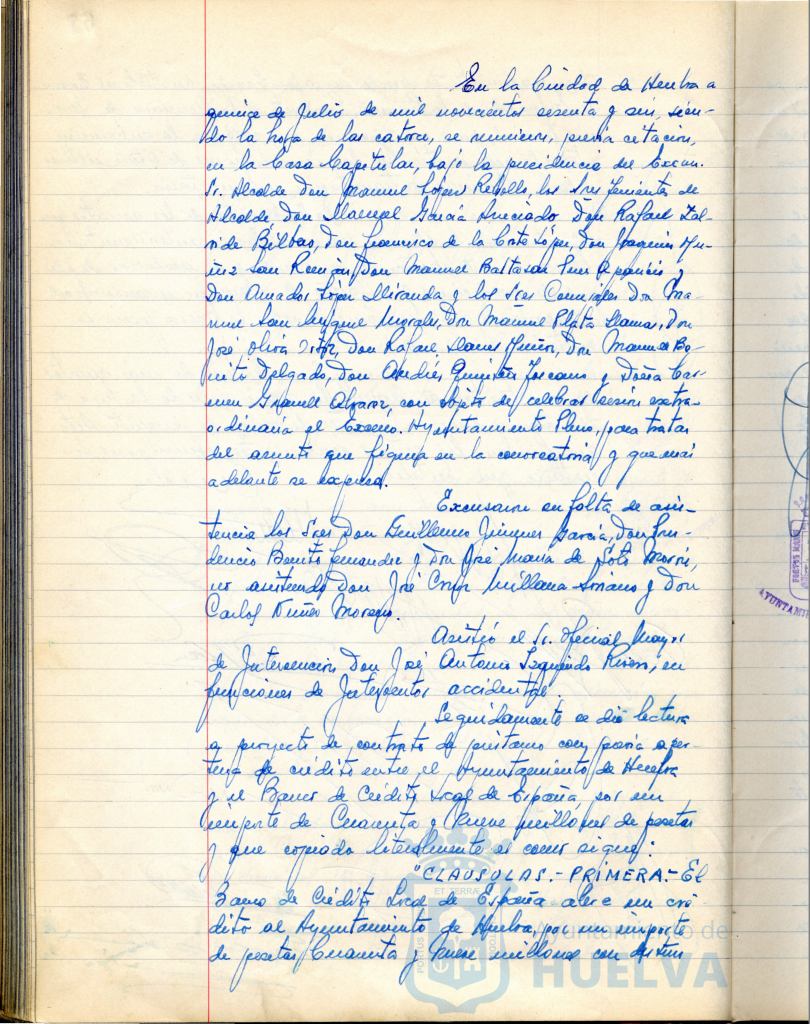 En la Ciudad de Huelva a
quince de Julio de mil novecientos sesenta y seis, sien-
do la hora de las catorce, se reunieron, previa citación,
en la Casa Capitular, bajo la presidencia del Excmo.
Sr. Alcalde Don Manuel López Rebollo, los Sres Tenientes de
Alcalde Don Manuel García Don Rafael Zal-
vide Bilbao, Don Francisco de la Corte López, Don Joaquín Mu-
ñiz San Román, Don Manuel Baltasar Aparicio y
Don Amador López Miranda y los Sres Concejales Don Ma-
nuel San Miguel Morales, Don Manuel Plata Llamas, Don
José Oliva Don Rafael Llanes Muñoz, Don Manuel Bo-
nito Delgado, Don Andrés Quintín Toscano y Doña Car-
men Granell Alvarez, con objeto de celebrar sesión extra-
ordinaria el Excmo. Ayuntamiento Pleno, para tratar
del asunto que figura en la convocatoria y que más
adelante se expresa.
Excusaron su falta de asis-
tencia los Sres Don Guillermo Jiménez García, Don Pru-
dencio Benito Fernández y Don José María de Soto Morón,
no asistiendo Don José Millana Soriano y Don
Carlos Núñez Moreno.
Asistió el Sr. Oficial Mayor
de Intervención Don José Antonio Izquierdo Rivero, en
funciones de Interventor accidental.
Seguidamente se dio lectura
a proyecto de contrato de préstamo con previa aper-
tura de crédito entre el Ayuntamiento de Huelva
y el Banco de Crédito Local de España, por un
importe de Cuarenta y Nueve millones de pesetas
y que copiado literalmente es como sigue:
"CLAUSULAS.- PRIMERA.- El
Banco de Crédito Local de España abre un cré-
dito al Ayuntamiento de Huelva, por un importe
de pesetas Cuarenta y Nueve millones con destino
Ayuntamiento de
HUELVA